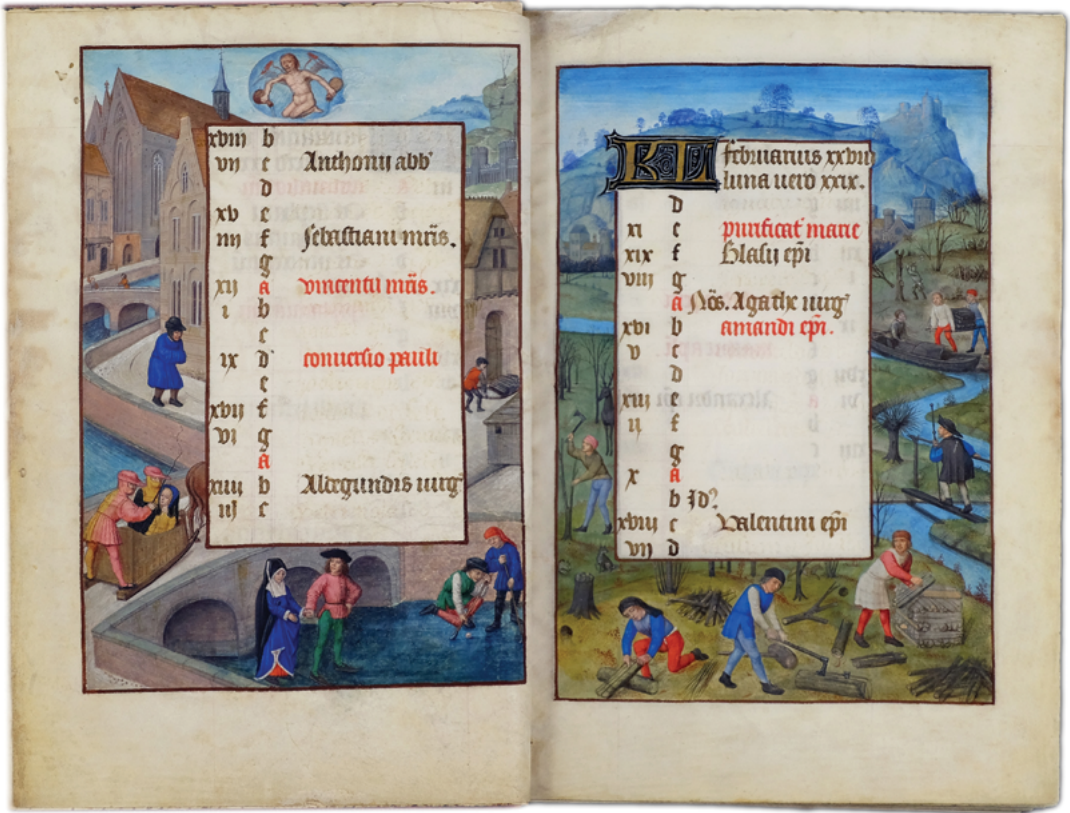 xviii b
vii c Anthonii abb
d
xv e
iiii f Sebastiani mris.
g
xii a vincentii mris.
i b
c
ix d conversio pauli
e
xvii f
vi g
a
xiiii b Aldegundis virg
iij c
KL februarius xxviii
luna vero xxix.
d
xi e purificat marie
xix f Blasii epi
viii g
a Nōs. Agathe virg
xvi b amandi epi.
v c
d
xiii e
ii f
g
x a
b Id?
xviii c Valentini epi
vii d